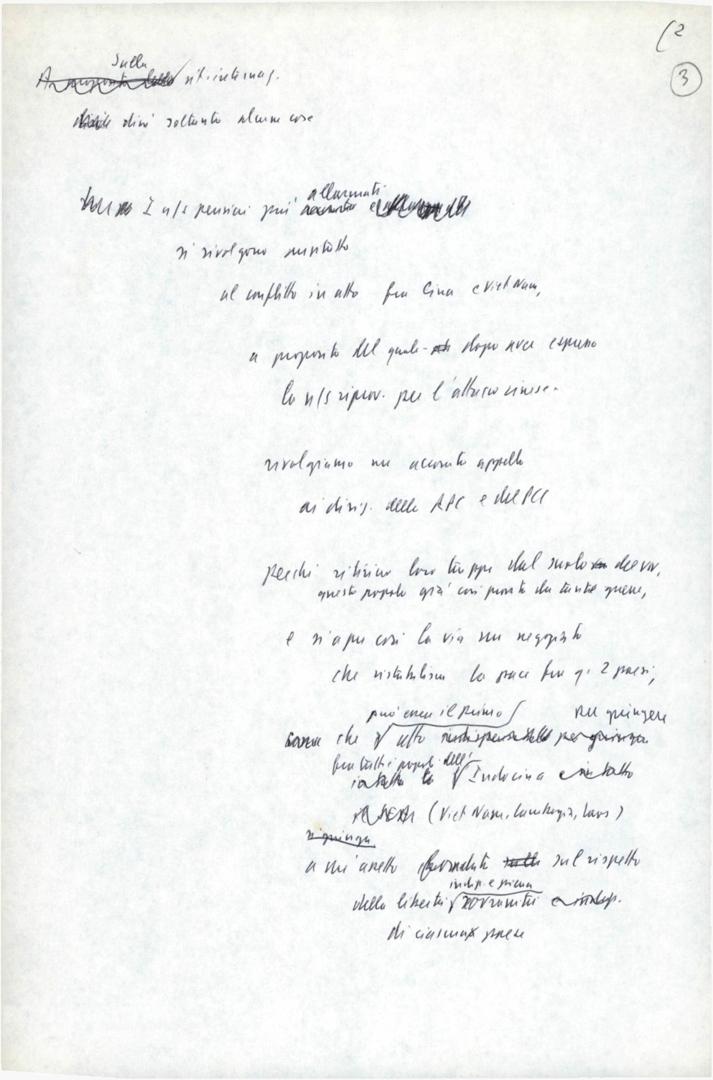 (2
3
Sulla
A proposito della sit. internaz.
dirò soltanto alcune cose
allarmati
I n/s pensieri più
si rivolgono
al conflitto in atto fra Cina e Viet Nam,
a proposito del quale - dopo aver espresso
la n/s riprov. per l'attacco cinese -
rivolgiamo un accorato appello
ai dirig. della RPC e del PCC
perché ritirino loro truppe dal suolo
questo popolo già così provato da tante guerre,
e si apra così la via un negoziato
che ristabilisca la pace fra q. 2 paesi,
può essere il primo per giungere
che atto indispensabile per giungere
fra tutti i popoli dell'
Indocina
(Viet Nam, Cambogia, Laos)
si giunga
a un assetto fondato sul rispetto
indip. e piena
della libertà sovranità e indip.
di ciascun paese